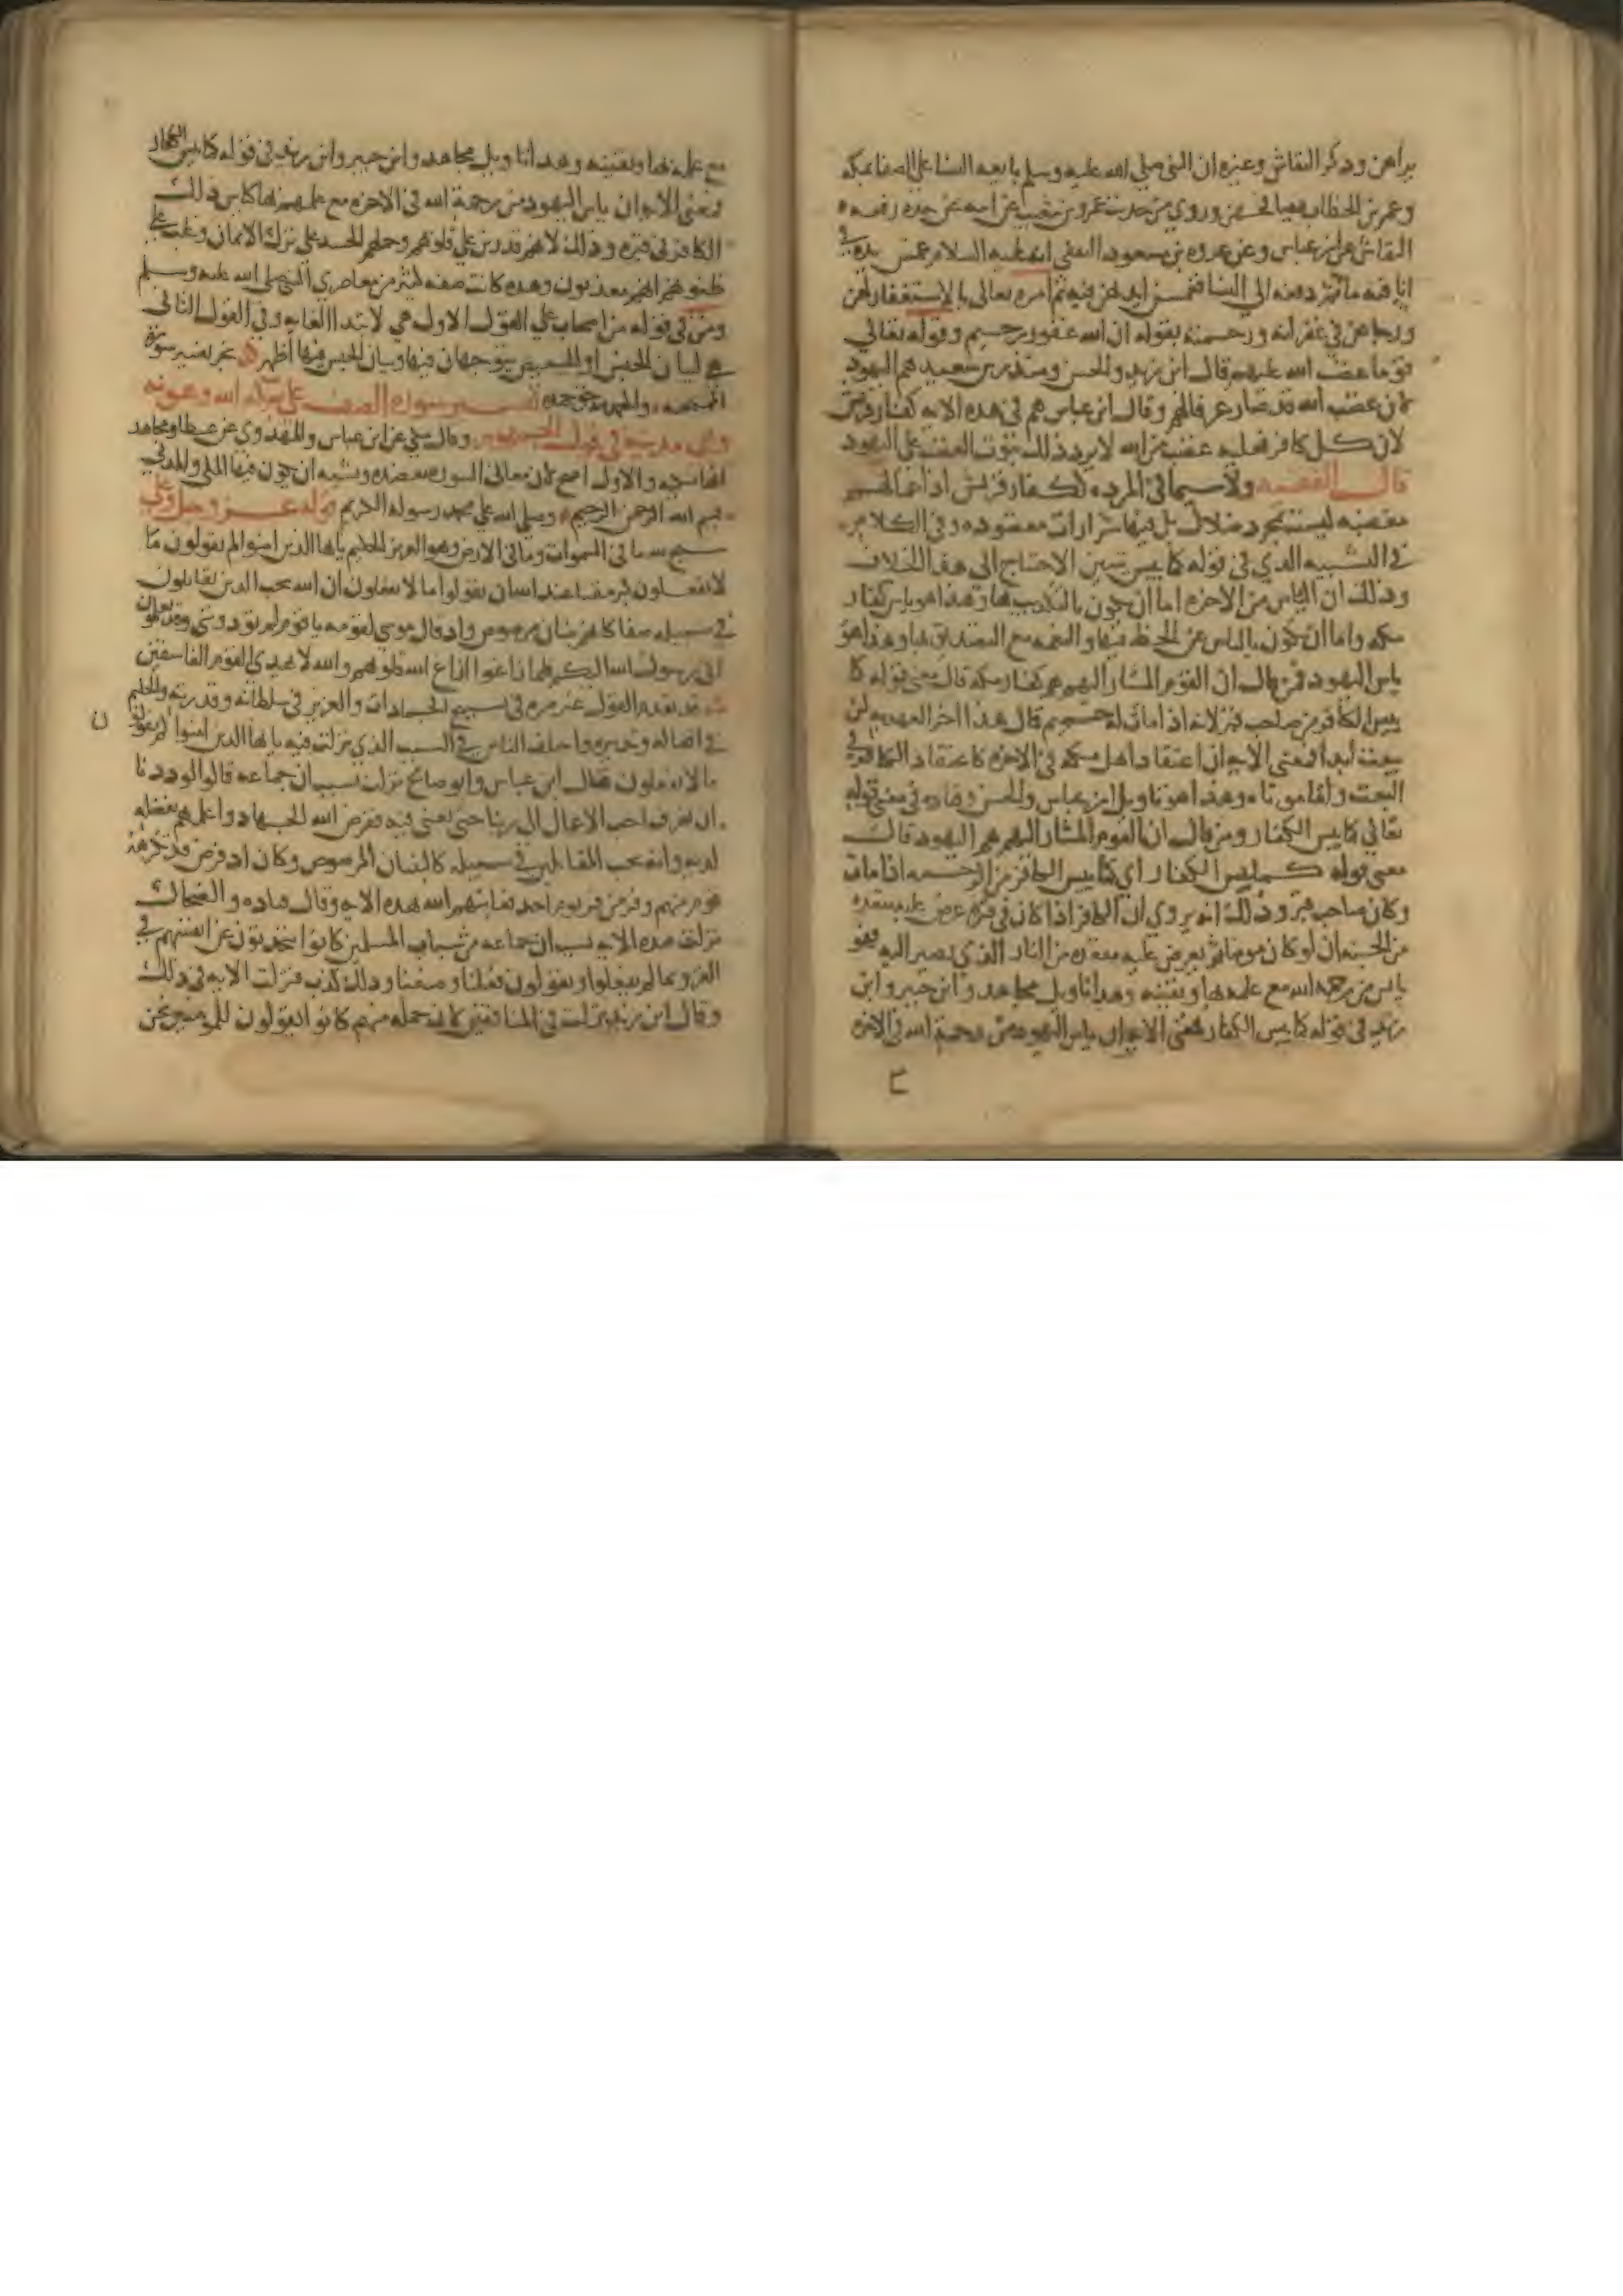 براهن وذكر النقاش وغيره ان النبي صلى الله عليه وسلم بايعه النسا على الصفا بمكه
وعمر بن الخطاب يصافحهن وروي من حديث عمرو بن شعيب عن ابيه عن جده رفعه
النقاش عن ابن عباس وعن عروه بن مسعود الثقفي انه عليه السلام غمس يده في
انا فيه ما ثم دفعه الى النسا فغمسن ايديهن فيه ثم امره تعالى بالاستغفار لهن
ورجاهن في غفرانه ورحمته بقوله ان الله غفور رحيم وقوله تعالى
قوما غضب الله عليهم قال ابن زيد والحسن ومنذر بن سعيد هم اليهود
لان غضب الله قد صار عرفا لهم وقال ابن عباس هم في هذه الايه كفار قريش
لان كل كافر فعليه غضب من الله لا يرد ذلك ثبوت الغضب على اليهود
قال الفقيه ولا سيما في المرده ككفار قريش اذ اعمالهم
مغضبه ليست بمجرد ضلال بل فيها شرارات مقصوده وفي الكلام
في التشبيه الذي في قوله كما يئس يتبين الاحتياج الى هذا الخلاف
وذلك ان الياس من الاخره اما ان يكون بالتكذيب بها وهذا هو ياس كفار
مكه واما ان يكون بالياس عن الحظ فيها والنعمه مع التصديق بها وهذا هو
ياس اليهود فمن قال ان القوم المشار اليهم هم كفار مكه قال معنى قوله كما
يئس الكافر من صاحب قبر لانه اذا مات له حميم قال هذا اخر العهد به لن
يبعث ابدا فمعنى الايه ان اعتقاد اهل مكه في الاخره كاعتقاد الكافر في
البعث ولقا موتاه وهذا هو تاويل ابن عباس والحسن وقتاده في معنى قوله
تعالى كما يئس الكفار ومن قال ان القوم المشار اليهم هم اليهود قال
معنى قوله كما يئس الكفار اي كما يئس الكافر من الرحمه اذا مات
وكان صاحب قبر وذلك انه يروى ان الكافر اذا كان في قبره عرض عليه مقعده
من الجنه ان لو كان مومنا ثم يعرض عليه مقعده من النار الذي يصير اليه فهو
يائس من رحمه الله مع علمه بها ويقينه وهذا تاويل مجاهد وابن جبير وابن
زيد في قوله كما يئس الكفار فمعنى الايه ان ياس اليهود من رحمة الله في الاخره
مع علمهم بها ويقينه وهذا تاويل مجاهد وابن جبير وابن زيد في قوله كما يئس الكفار
فمعنى الايه ان ياس اليهود من رحمة الله في الاخره مع علمهم بها كياس ذلك
الكافر في قبره وذلك لانهم قد رين على قلوبهم وحملهم الحسد على ترك الايمان وغلب على
ظنونهم انهم معذبون وهذه كانت صفه كثير من معاصري النبي صلى الله عليه وسلم
ومن في قوله من اصحاب على القول الاول هي لابتدا الغايه وفي القول الثاني
هي لبيان الجنس او التبعيض يتوجهان فيها وبيان الجنس فيها اظهر نجز تفسير سوره
الممتحنه والحمد لله حق حمده تفسير سورة الصف على بركه الله وعونه
وهي مدنيه في قول الجمهور وقال مكي عن ابن عباس والمهدوي عن عطا ومجاهد
انها مكيه والاول اصح لان معاني السوره تعضده ويشبه ان يكون فيها المكي والمدني
بسم الله الرحمن الرحيم وصلى الله على محمد رسوله الكريم قوله عز وجل
سبح لله ما في السموات وما في الارض وهو العزيز الحكيم يايها الذين امنوا لم تقولون ما
لا تفعلون كبر مقتا عند الله ان تقولوا ما لا تفعلون ان الله يحب الذين يقاتلون
في سبيله صفا كانهم بنيان مرصوص واذ قال موسى لقومه يا قوم لم تؤذونني وقد تعلمون
اني رسول الله اليكم فلما زاغوا ازاغ الله قلوبهم والله لا يهدي القوم الفاسقين
قد تقدم القول غير مره في تسبيح الجمادات والعزيز في سلطانه وقدرته والحكيم
في افعاله وتدبيره واختلف الناس في السبب الذي نزلت فيه يايها الذين امنوا لم تقولون
ما لا تفعلون فقال ابن عباس وابو صالح نزلت بسبب ان جماعه قالوا لوددنا
ان نعرف احب الاعمال الى ربنا حتى نعنى فيه ففرض الله الجهاد واعلمهم بفضله
لديه وانه يحب المقاتلين في سبيله كالبنيان المرصوص وكان اذ فرض قد تكرهه
قوم منهم وفر من فر يوم احد فعاتبهم الله بهذه الايه وقال قتاده والضحاك
نزلت هذه الايه بسبب ان جماعه من شباب المسلمين كانوا يتحدثون عن انفسهم في
الغزو بما لم يفعلوا ويقولون فعلنا وصنعنا وذلك كذب فنزلت الايه في ذلك
وقال ابن زيد نزلت في المنافقين لان جمله منهم كانوا يقولون للمومنين نحن